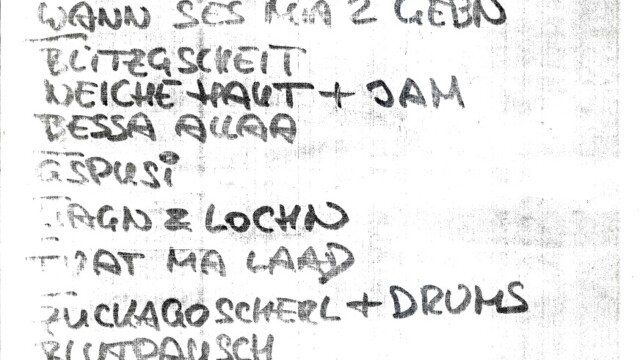 WANN SES MIA Z GEBN
BLITZGSCHEIT
WEICHE HAUT + JAM
BESSA ALLAA
GSPUSI
SAGN Z LOCHN
TUAT MA LAAD
ZUCKAGOSCHERL + DRUMS
BLUTRAUSCH